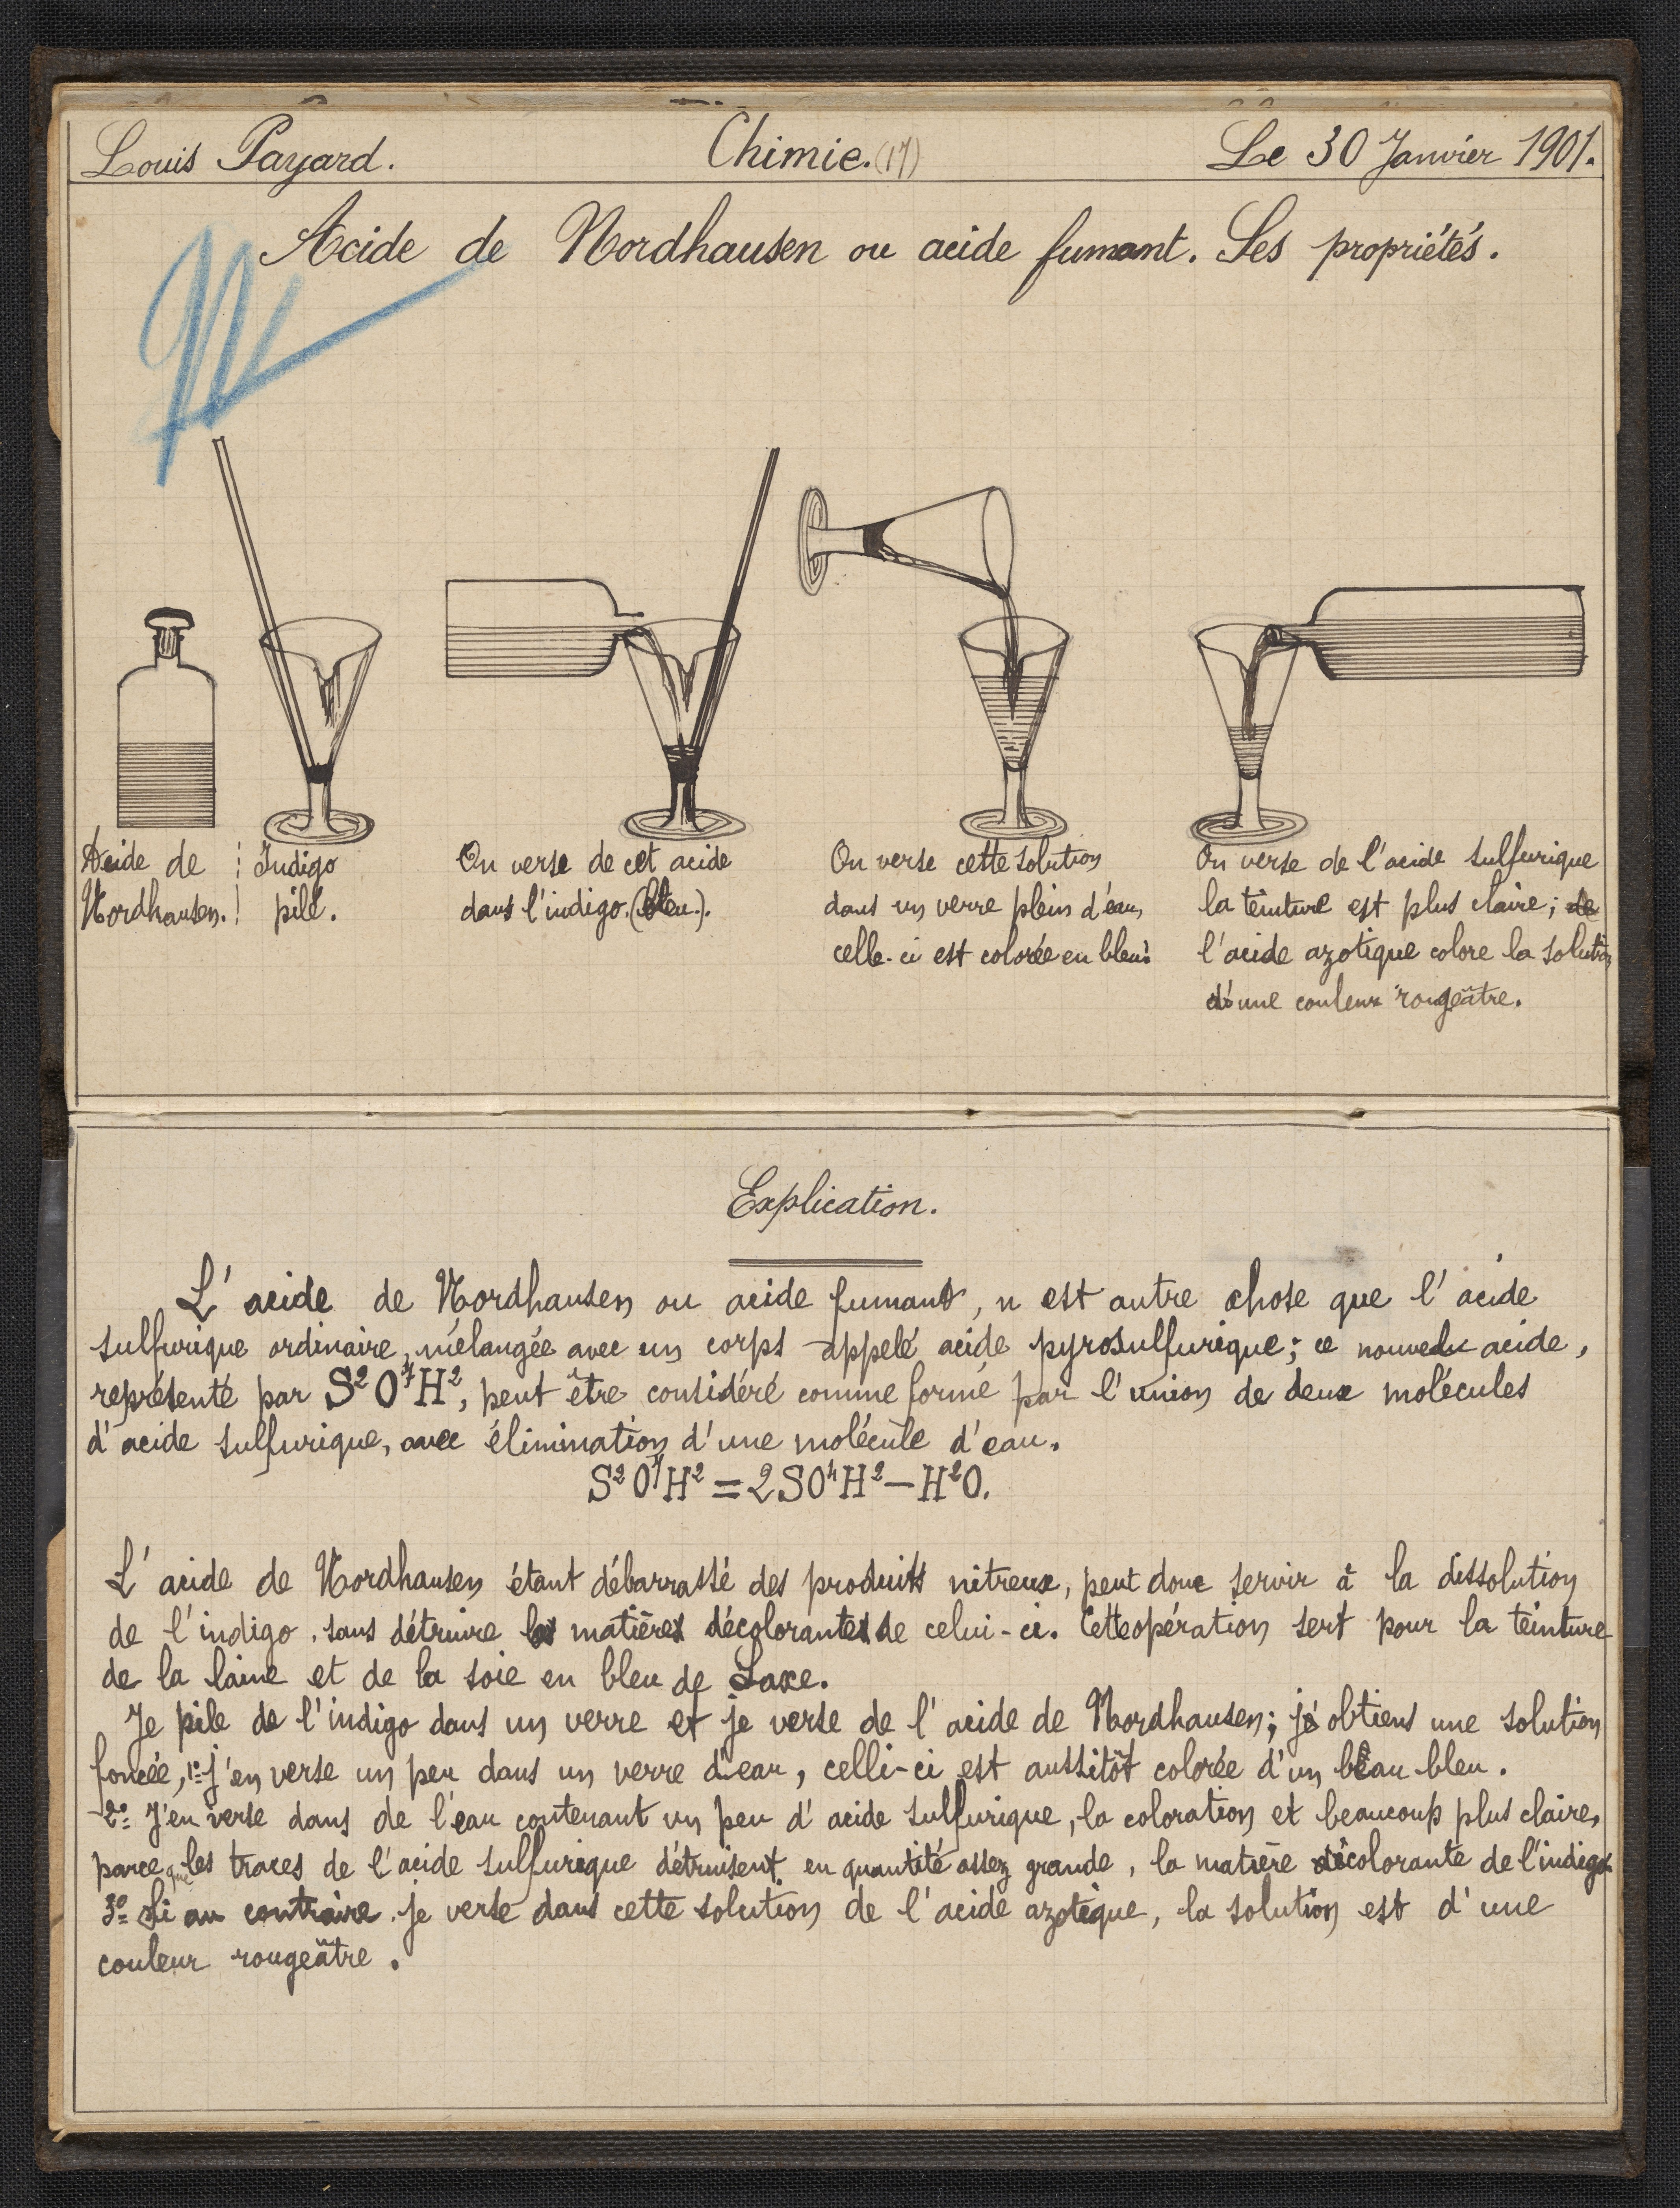 Louis Payard. Chimie. (17) Le 30 Janvier 1901.
Acide de Nordhausen ou acide fumant. Ses propriétés.
Acide de
Nordhausen.
Indigo
pilé.
On verse de cet acide
dans l'indigo. (bleu.).
On verse cette solution
dans un verre plein d'eau,
celle-ci est colorée en bleu.
On verse de l'acide sulfurique
la teinture est plus claire; de
l'acide azotique colore la solution
d'une couleur rougeâtre.
Explication.
L'acide de Nordhausen ou acide fumant, n'est autre chose que l'acide
sulfurique ordinaire, mélangée avec un corps appelé acide pyrosulfurique; ce nouvel acide,
représenté par S²O⁷H², peut être considéré comme formé par l'union de deux molécules
d'acide sulfurique, avec élimination d'une molécule d'eau.
S²O⁷H² = 2SO⁴H² – H²O.
L'acide de Nordhausen étant débarrassé des produits nitreux, peut donc servir à la dissolution
de l'indigo, sans détruire les matières décolorantes de celui-ci. Cette opération sert pour la teinture
de la laine et de la soie en bleu de Saxe.
Je pile de l'indigo dans un verre et je verse de l'acide de Nordhausen; j'obtiens une solution
foncée, 1º j'en verse un peu dans un verre d'eau, celli-ci est aussitôt colorée d'un beau bleu.
2º J'en verse dans de l'eau contenant un peu d'acide sulfurique, la coloration et beaucoup plus claire,
parce que les traces de l'acide sulfurique détruisent en quantité assez grande, la matière décolorante de l'indigo
3º Si au contraire je verse dans cette solution de l'acide azotique, la solution est d'une
couleur rougeâtre.